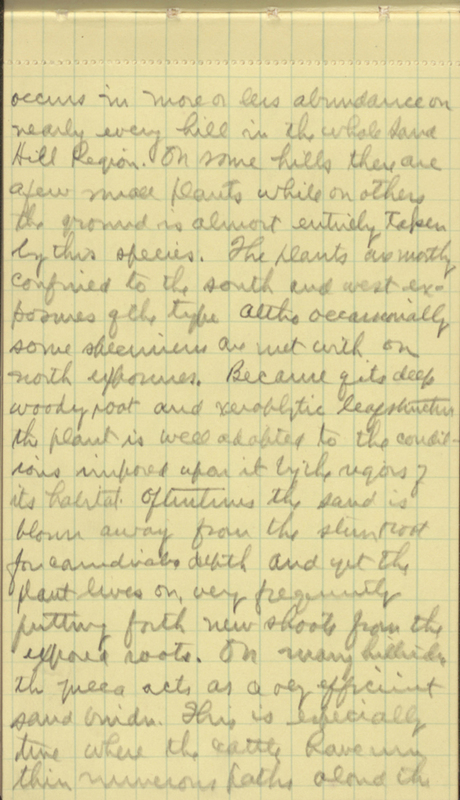 occurs in more or less abundance on
nearly every hill in the whole Sand
Hill Region. On some hills there are
a few small plants while on others
the ground is almost entirely taken
by this species. The plants are mostly
confined to the south and west ex-
posures of the type altho occassionally
some specimens are met with on
north exposures. Because of its deep
woody root and xerophytic leaf structure
the plant is well adapted to the condit-
ions imposed upon it by the rigors of
its habitat. Oftentimes the sand is
blown away from the stem root
for considerable depth and yet the
plant lives on, very frequently
putting forth new shoots from the
exposed roots. On many hillsides
the yucca acts as a very efficient
sand binder. This is especially
true where the cattle have run
their numerous paths along the